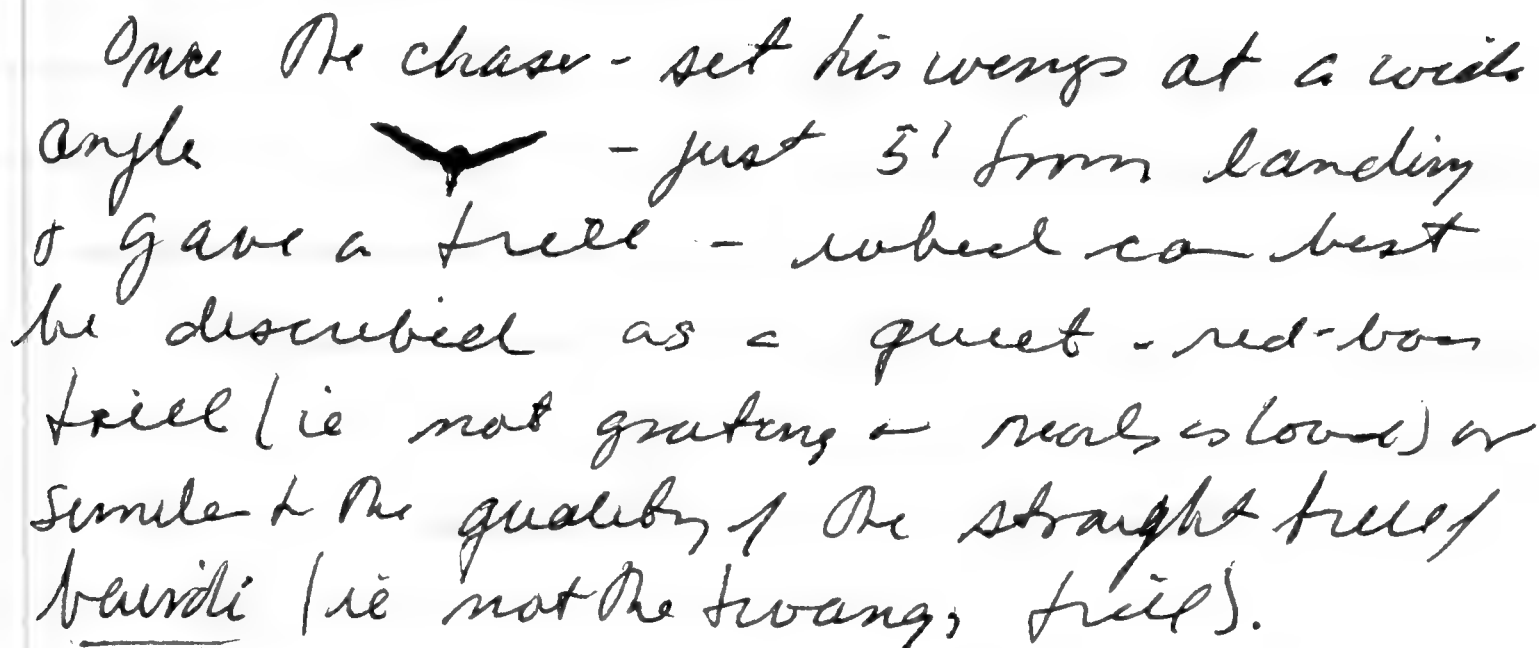 Once the chaser - set his wings at a wide
angle - just 5' from landing
& gave a trill - which can best
be described as a quiet - red-box
trill (ie not grating or nearly as loud) or
similar to the quality of the straight trill of
bairdi (ie not the twangy trill).